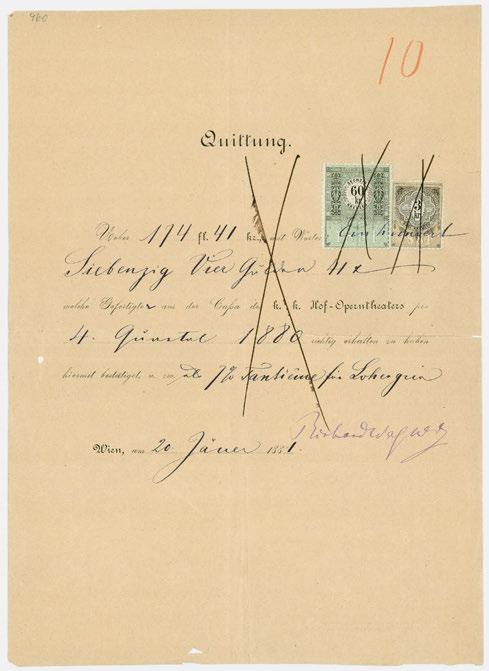 960
10
Quittung.
60 kr
3 kr
Ueber 174 fl. 41 kr., mit Worten Einhundert
Siebenzig Vier Gulden 41 x
welche Gefertigter aus der Cassa des k. k. Hof-Operntheaters per
4. Quartal 1880 richtig erhalten zu haben
hiermit bestätiget, u. zw. als 7% Tantième für Lohengrin
Wien, am 20. Jäner 1881.
Richard Wagner